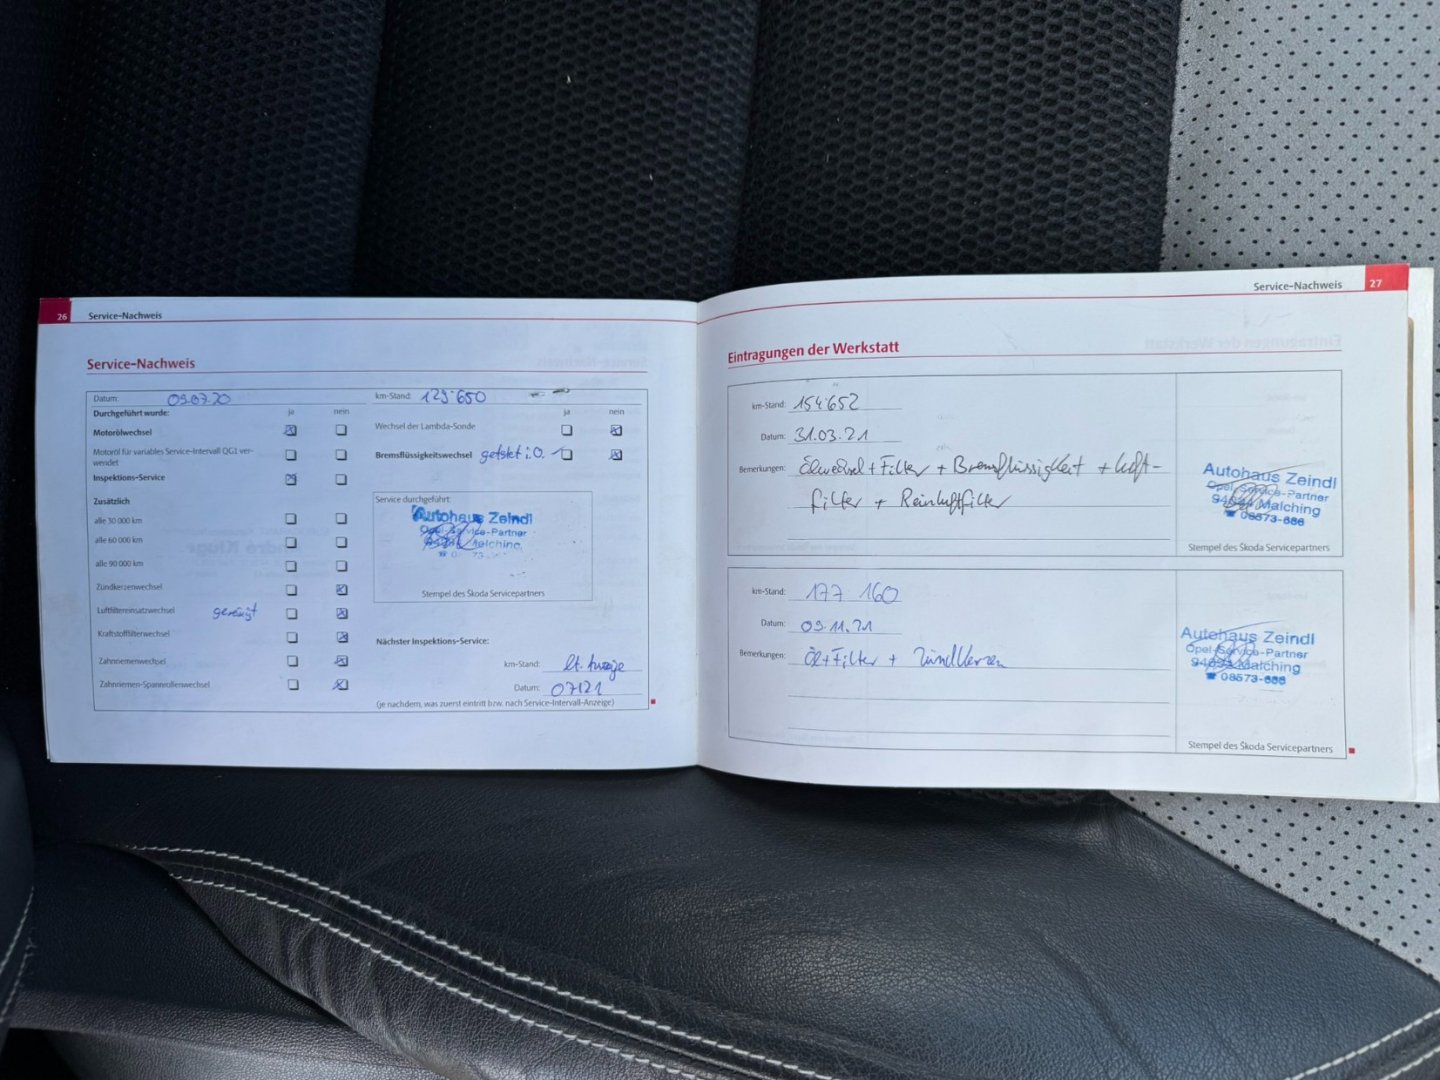 26 Service-Nachweis
Service-Nachweis
Datum: 09.07.20
km-Stand: 129.650
Durchgeführt wurde: ja nein
Motorölwechsel
Motoröl für variables Service-Intervall QG1 ver-
wendet
Inspektions-Service
Zusätzlich
alle 30 000 km
alle 60 000 km
alle 90 000 km
Zündkerzenwechsel
Luftfiltereinsatzwechsel gereinigt
Kraftstofffilterwechsel
Zahnriemenwechsel
Zahnriemen-Spannrollenwechsel
ja nein
Wechsel der Lambda-Sonde
Bremsflüssigkeitswechsel getestet i.O.
Service durchgeführt:
Autohaus Zeindl
Opel-Service-Partner
Malching
Stempel des Škoda Servicepartners
Nächster Inspektions-Service:
km-Stand: lt. Anzeige
Datum: 07/21
(je nachdem, was zuerst eintritt bzw. nach Service-Intervall-Anzeige)
Service-Nachweis 27
Eintragungen der Werkstatt
km-Stand: 154.652
Datum: 31.03.21
Bemerkungen: Ölwechsel + Filter + Bremsflüssigkeit + Luft-
filter + Reinluftfilter
Autohaus Zeindl
Opel-Service-Partner
94094 Malching
☎ 08573-686
Stempel des Škoda Servicepartners
km-Stand: 177 160
Datum: 09.11.21
Bemerkungen: Öl + Filter + Zündkerzen
Autohaus Zeindl
Opel-Service-Partner
94094 Malching
☎ 08573-686
Stempel des Škoda Servicepartners